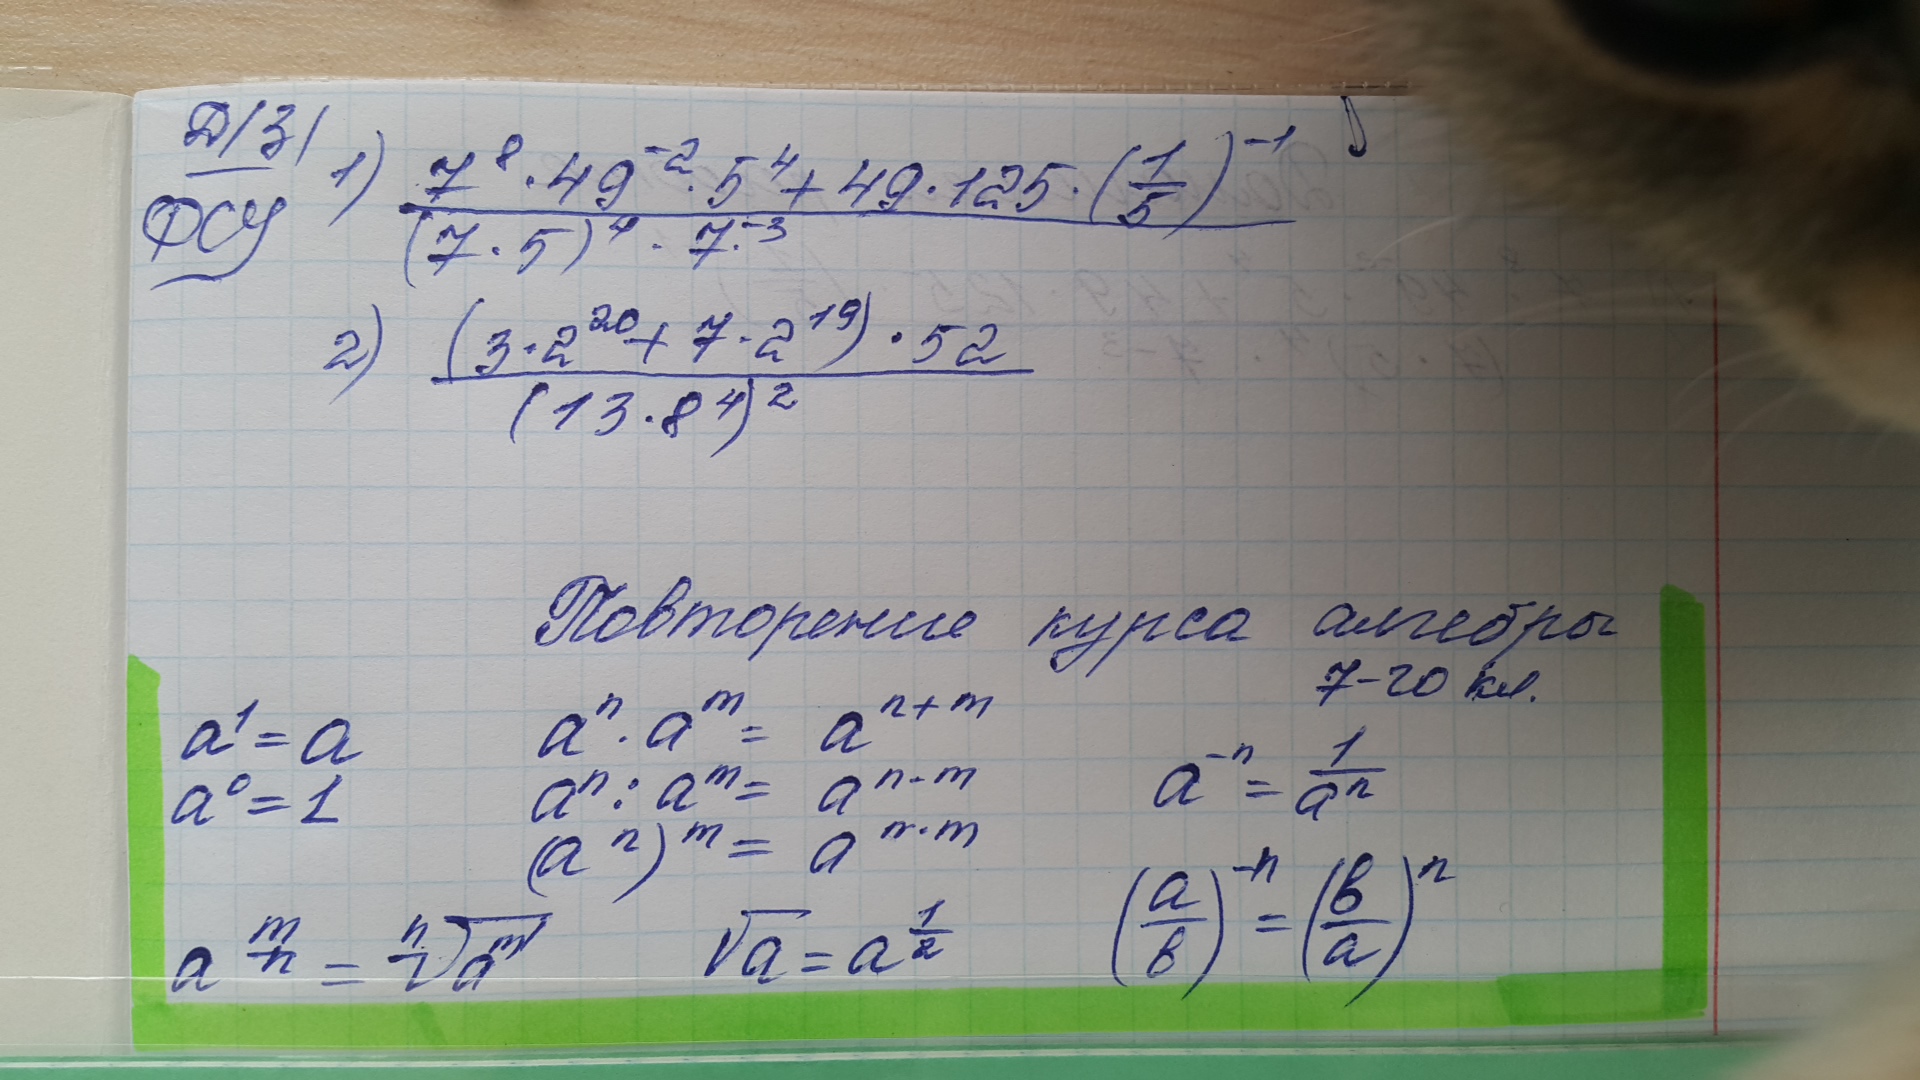 Д/З/
ФСУ
1) (7^8 · 49^-2 · 5^4 + 49 · 125 · (1/5)^-1) / ((7 · 5)^4 · 7^-3)
2) ((3 · 2^20 + 7 · 2^19) · 52) / (13 · 8^4)^2
Повторение курса алгебры
7-20 кл.
a^1 = a
a^n · a^m = a^n+m
a^0 = 1
a^n : a^m = a^n-m
a^-n = 1/a^n
(a^n)^m = a^n·m
a^m/n = n√a^m
√a = a^1/2
(a/в)^-n = (в/a)^n